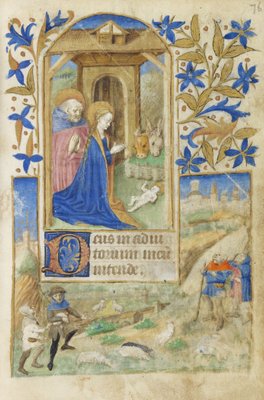 76
Deus in adiu
torium meu
intende.